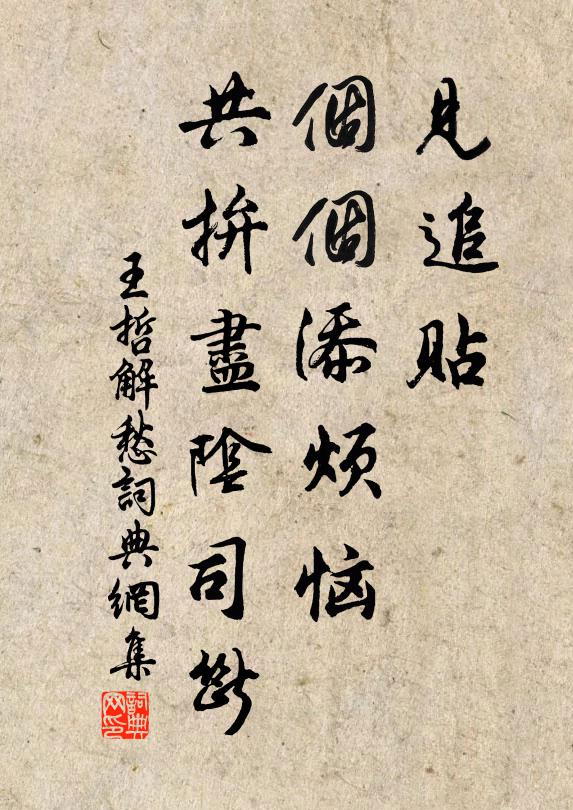 見追貼
個個添煩惱
共拚盡陰司斷
王哲解愁詞典網集
詞典网印